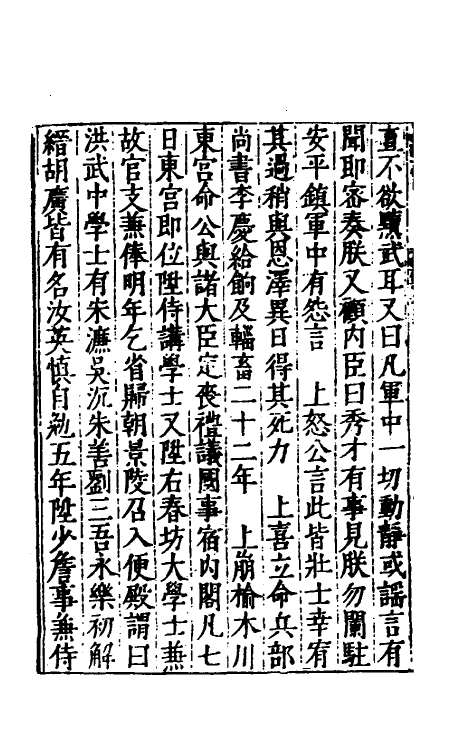 直不欲黷武耳又曰凡軍中一切動静或謡言有
聞即審奏朕又顧内臣曰秀才有事見朕勿闌駐
安平鎮軍中有怨言　上怒公言此皆壯士幸宥
其過稍與恩澤異日得其死力　上喜立命兵部
尚書李慶給餉及輜畜二十二年　上崩榆木川
東宫命公與諸大臣定喪禮議國事宿内閣凡七
日東宫即位陞侍講學士又陞右春坊大學士兼
故官支兼俸明年乞省歸朝景陵召入便殿謂曰
洪武中學士有朱濂吳沉朱善劉三吾永樂初解
縉胡廣皆有名汝英慎自勉五年陞少詹事兼侍